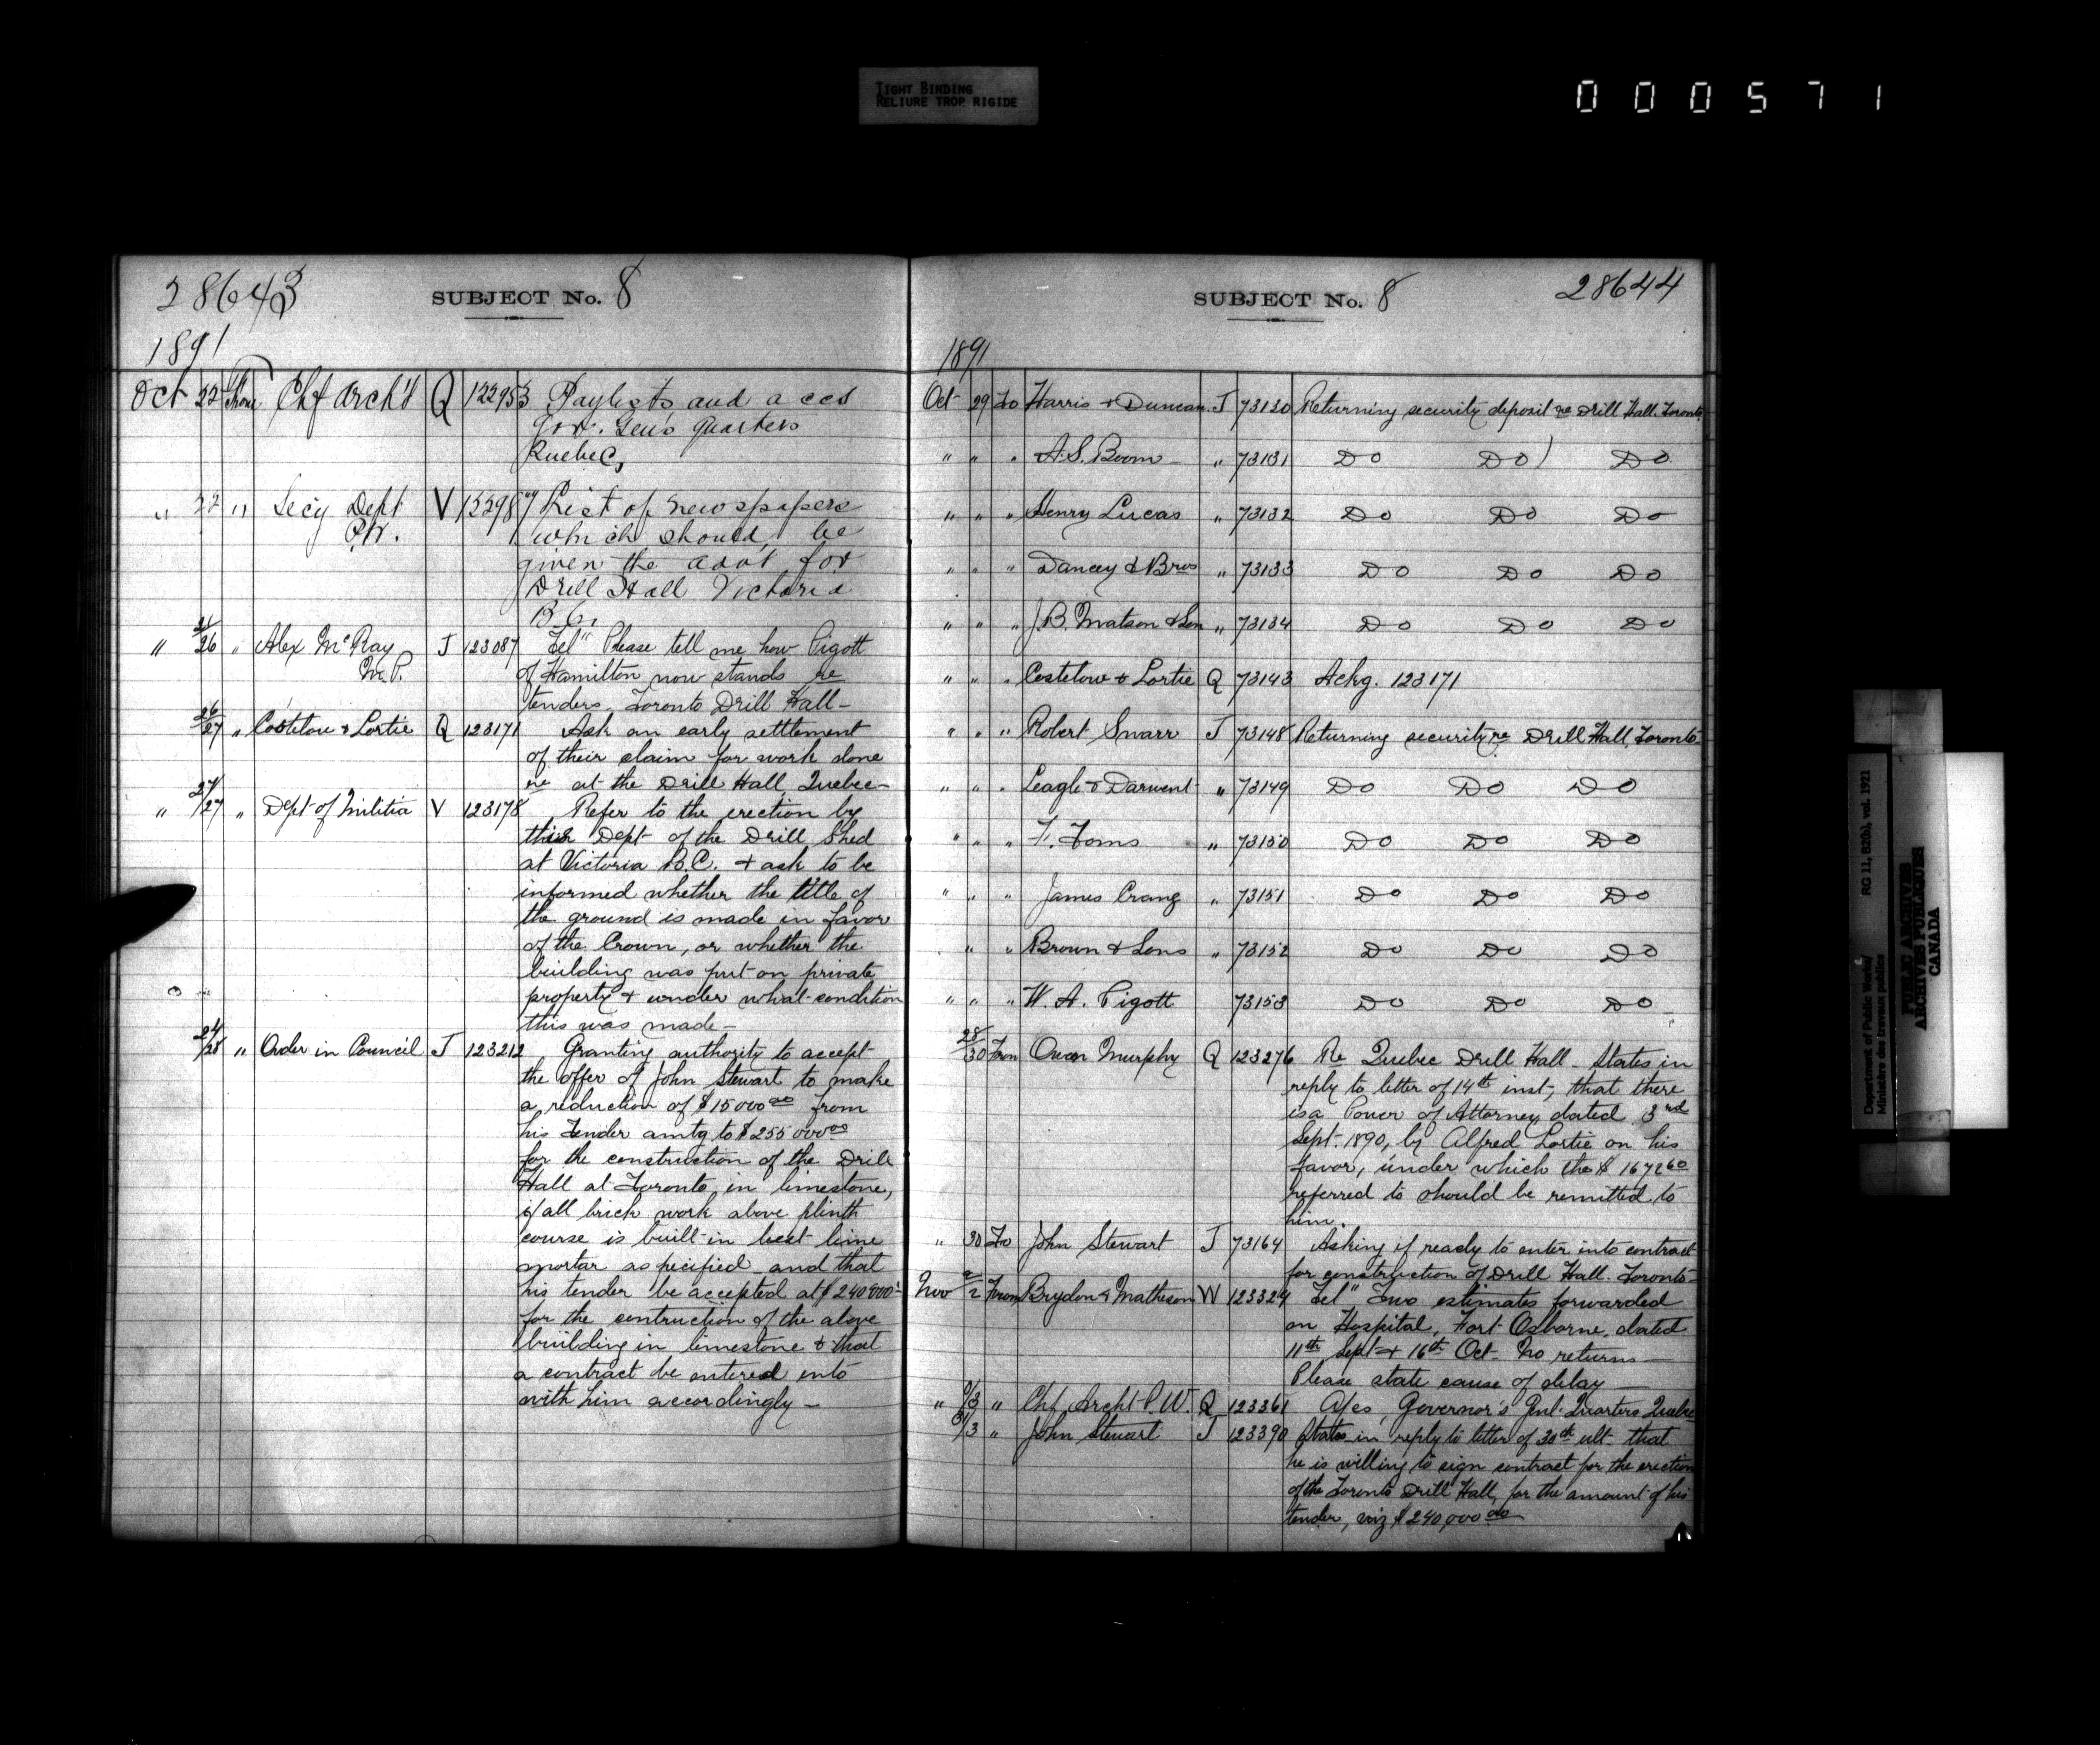 TIGHT BINDING
RELIURE TROP RIGIDE
000571
28643
SUBJECT No. 8
1891
Oct 22 From Chf Arch't Q 122953 Paylists and accs
Gov. Gen's Quarters
Quebec,
" 22 " Secy Dept V 122987 List of newspapers
P.W. which should be
given the advt for
Drill Hall Victoria
B.C.
" 21/26 " Alex McKay J 123087 Tel" Please tell me how Pigott
M.P. of Hamilton now stands re
tenders, Toronto Drill Hall-
26/27 " Costelow & Lortie Q 123171 Ask an early settlement
of their claim for work done
re at the Drill Hall, Quebec-
" 27/27 " Dept of Militia V 123178 Refer to the erection by
this Dept of the Drill Shed
at Victoria B.C. & ask to be
informed whether the title of
the ground is made in favor
of the Crown, or whether the
building was put on private
property & under what condition
this was made-
24/28 " Order in Council J 123212 Granting authority to accept
the offer of John Stewart to make
a reduction of $15000.00 from
his Tender amtg to $255 000.00
for the construction of the Drill
Hall at Toronto in limestone,
if all brick work above plinth
course is built in best lime
mortar as specified and that
his tender be accepted at $240000.-
for the contruction of the above
building in limestone & that
a contract be entered into
with him accordingly-
SUBJECT No. 8
28644
1891
Oct 29 To Harris & Duncan J 73130 Returning security deposit re Drill Hall. Toronto
" " " A.S. Boom " 73131 Do Do Do
" " " Henry Lucas " 73132 Do Do Do
" " " Dancey & Bros " 73133 Do Do Do
" " " J.B. Matson & Son " 73134 Do Do Do
" " " Costelow & Lortie Q 73143 Ackg. 123171
" " " Robert Snarr J 73148 Returning security re Drill Hall, Toronto-
" " " Leagle & Darwent " 73149 Do Do Do
" " " F. Toms " 73150 Do Do Do
" " " James Crang " 73151 Do Do Do
" " " Brown & Sons " 73152 Do Do Do
" " " W. A. Pigott 73153 Do Do Do
28/30 From Owen Murphy Q 123276 Re Quebec Drill Hall - States in
reply to letter of 14th inst, that there
is a Power of Attorney dated 3rd
Sept. 1890, by Alfred Lortie on his
favor, under which the $ 1672.60
referred to should be remitted to
him.
" 30 To John Stewart J 73164 Asking if ready to enter into contract
for construction of Drill Hall. Toronto-
Nov 2/2 From Brydon & Matheson W 123324 Tel" Two estimates forwarded
on Hospital, Fort Osborne, dated
11th Sept & 16th Oct- No returns-
Please state cause of delay-
" /3 " Chf Archt P.W. Q 123361 A/cs, Governor's Genl. Quarters Quebec
31/3 " John Stewart J 123390 States in reply to letter of 30th ult- that
he is willing to sign contract for the erection
of the Toronto Drill Hall, for the amount of his
tender, viz $240,000.00
Department of Public Works/ RG 11, B2(b), vol. 1921
Ministère des travaux publics
PUBLIC ARCHIVES
ARCHIVES PUBLIQUES
CANADA